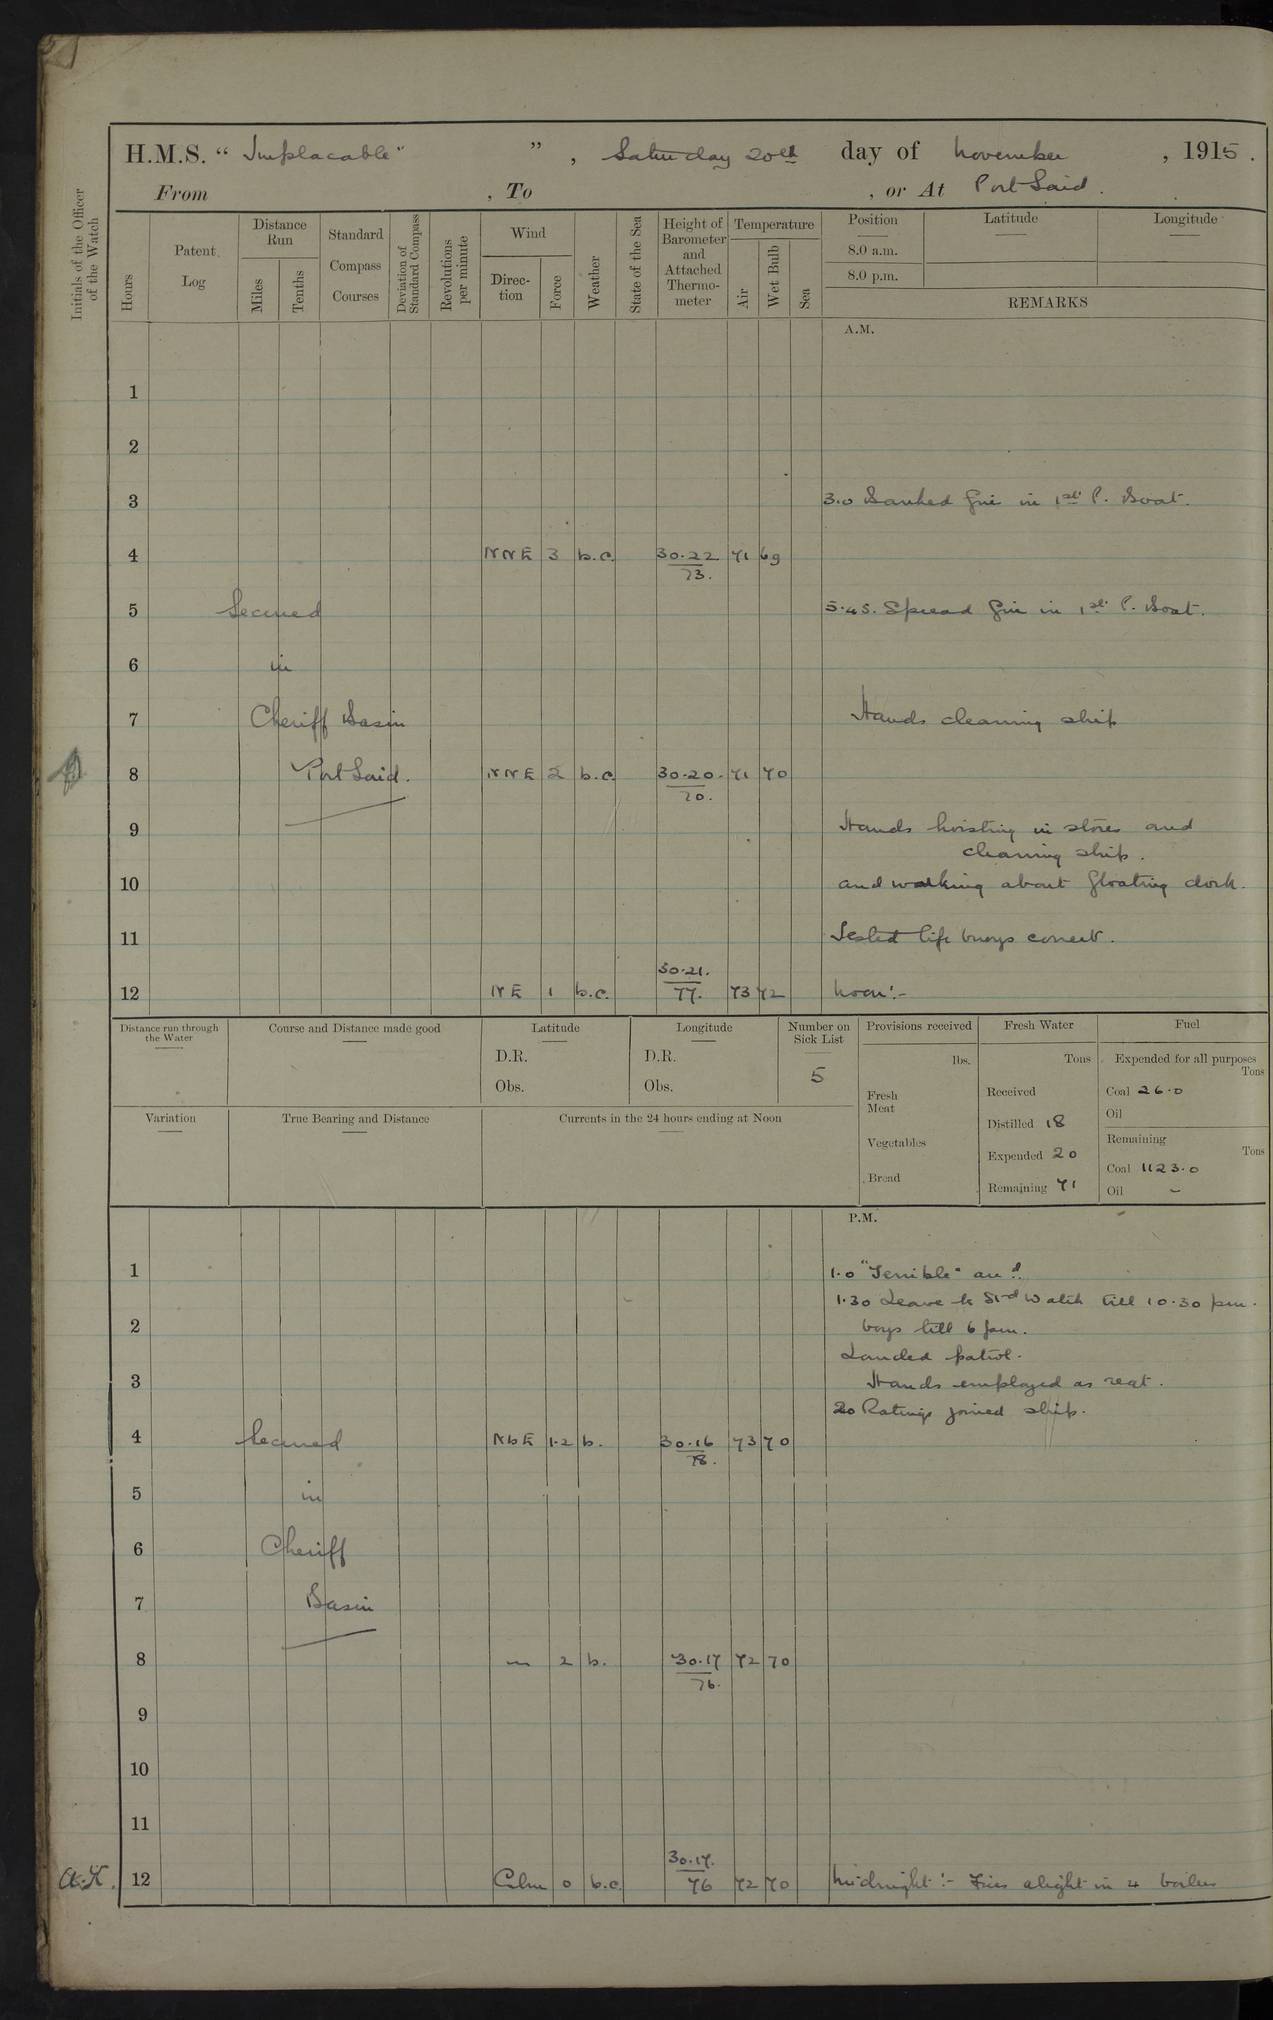 H.M.S. "Implacable" ", Saturday 20th day of November, 1915.
From , To , or At Port Said.
Initials of the Officer of the Watch
Hours
Patent Log
Distance Run
Miles
Tenths
Standard Compass Courses
Deviation of Standard Compass
Revolutions per minute
Wind
Direction
Force
Weather
State of the Sea
Height of Barometer and Attached Thermometer
Temperature
Air
Wet Bulb
Sea
Position Latitude Longitude
8.0 a.m.
8.0 p.m.
REMARKS
A.M.
1
2
3 3.0 Banked fire in 1st P. Boat.
4 NNE 3 b.c. 30.22 71 69
73.
5 Secured 5.45. Spread fire in 1st P. Boat.
6 in
7 Cheriff Basin Hands cleaning ship
8 Port Said. NNE 2 b.c. 30.20. 71 70
70.
9 Hands hoisting in stores and
cleaning ship.
10 and working about floating dock.
11 Tested life buoys correct.
30.21.
12 NE 1 b.c. 77. 73 72 Noon:-
Distance run through the Water
Course and Distance made good
Latitude
D.R.
Obs.
Longitude
D.R.
Obs.
Number on Sick List
5
Provisions received
lbs.
Fresh Meat
Vegetables
Bread
Fresh Water
Tons
Received
Distilled 18
Expended 20
Remaining 71
Fuel
Expended for all purposes
Tons
Coal 26.0
Oil
Remaining
Tons
Coal 1123.0
Oil -
Variation
True Bearing and Distance
Currents in the 24 hours ending at Noon
P.M.
1 1.0 "Terrible" arrd.
1.30 Leave to Strd Watch till 10.30 pm.
2 boys till 6 pm.
Landed patrol.
3 Hands employed as reqt.
20 Ratings joined ship.
4 Secured NbE 1.2 b. 30.16 73 70
78.
5 in
6 Cheriff
7 Basin
8 〃 2 b. 30.17 72 70
76.
9
10
11
30.17.
12 Calm 0 b.c. 76 72 70 Midnight:- Fires alight in 4 boilers